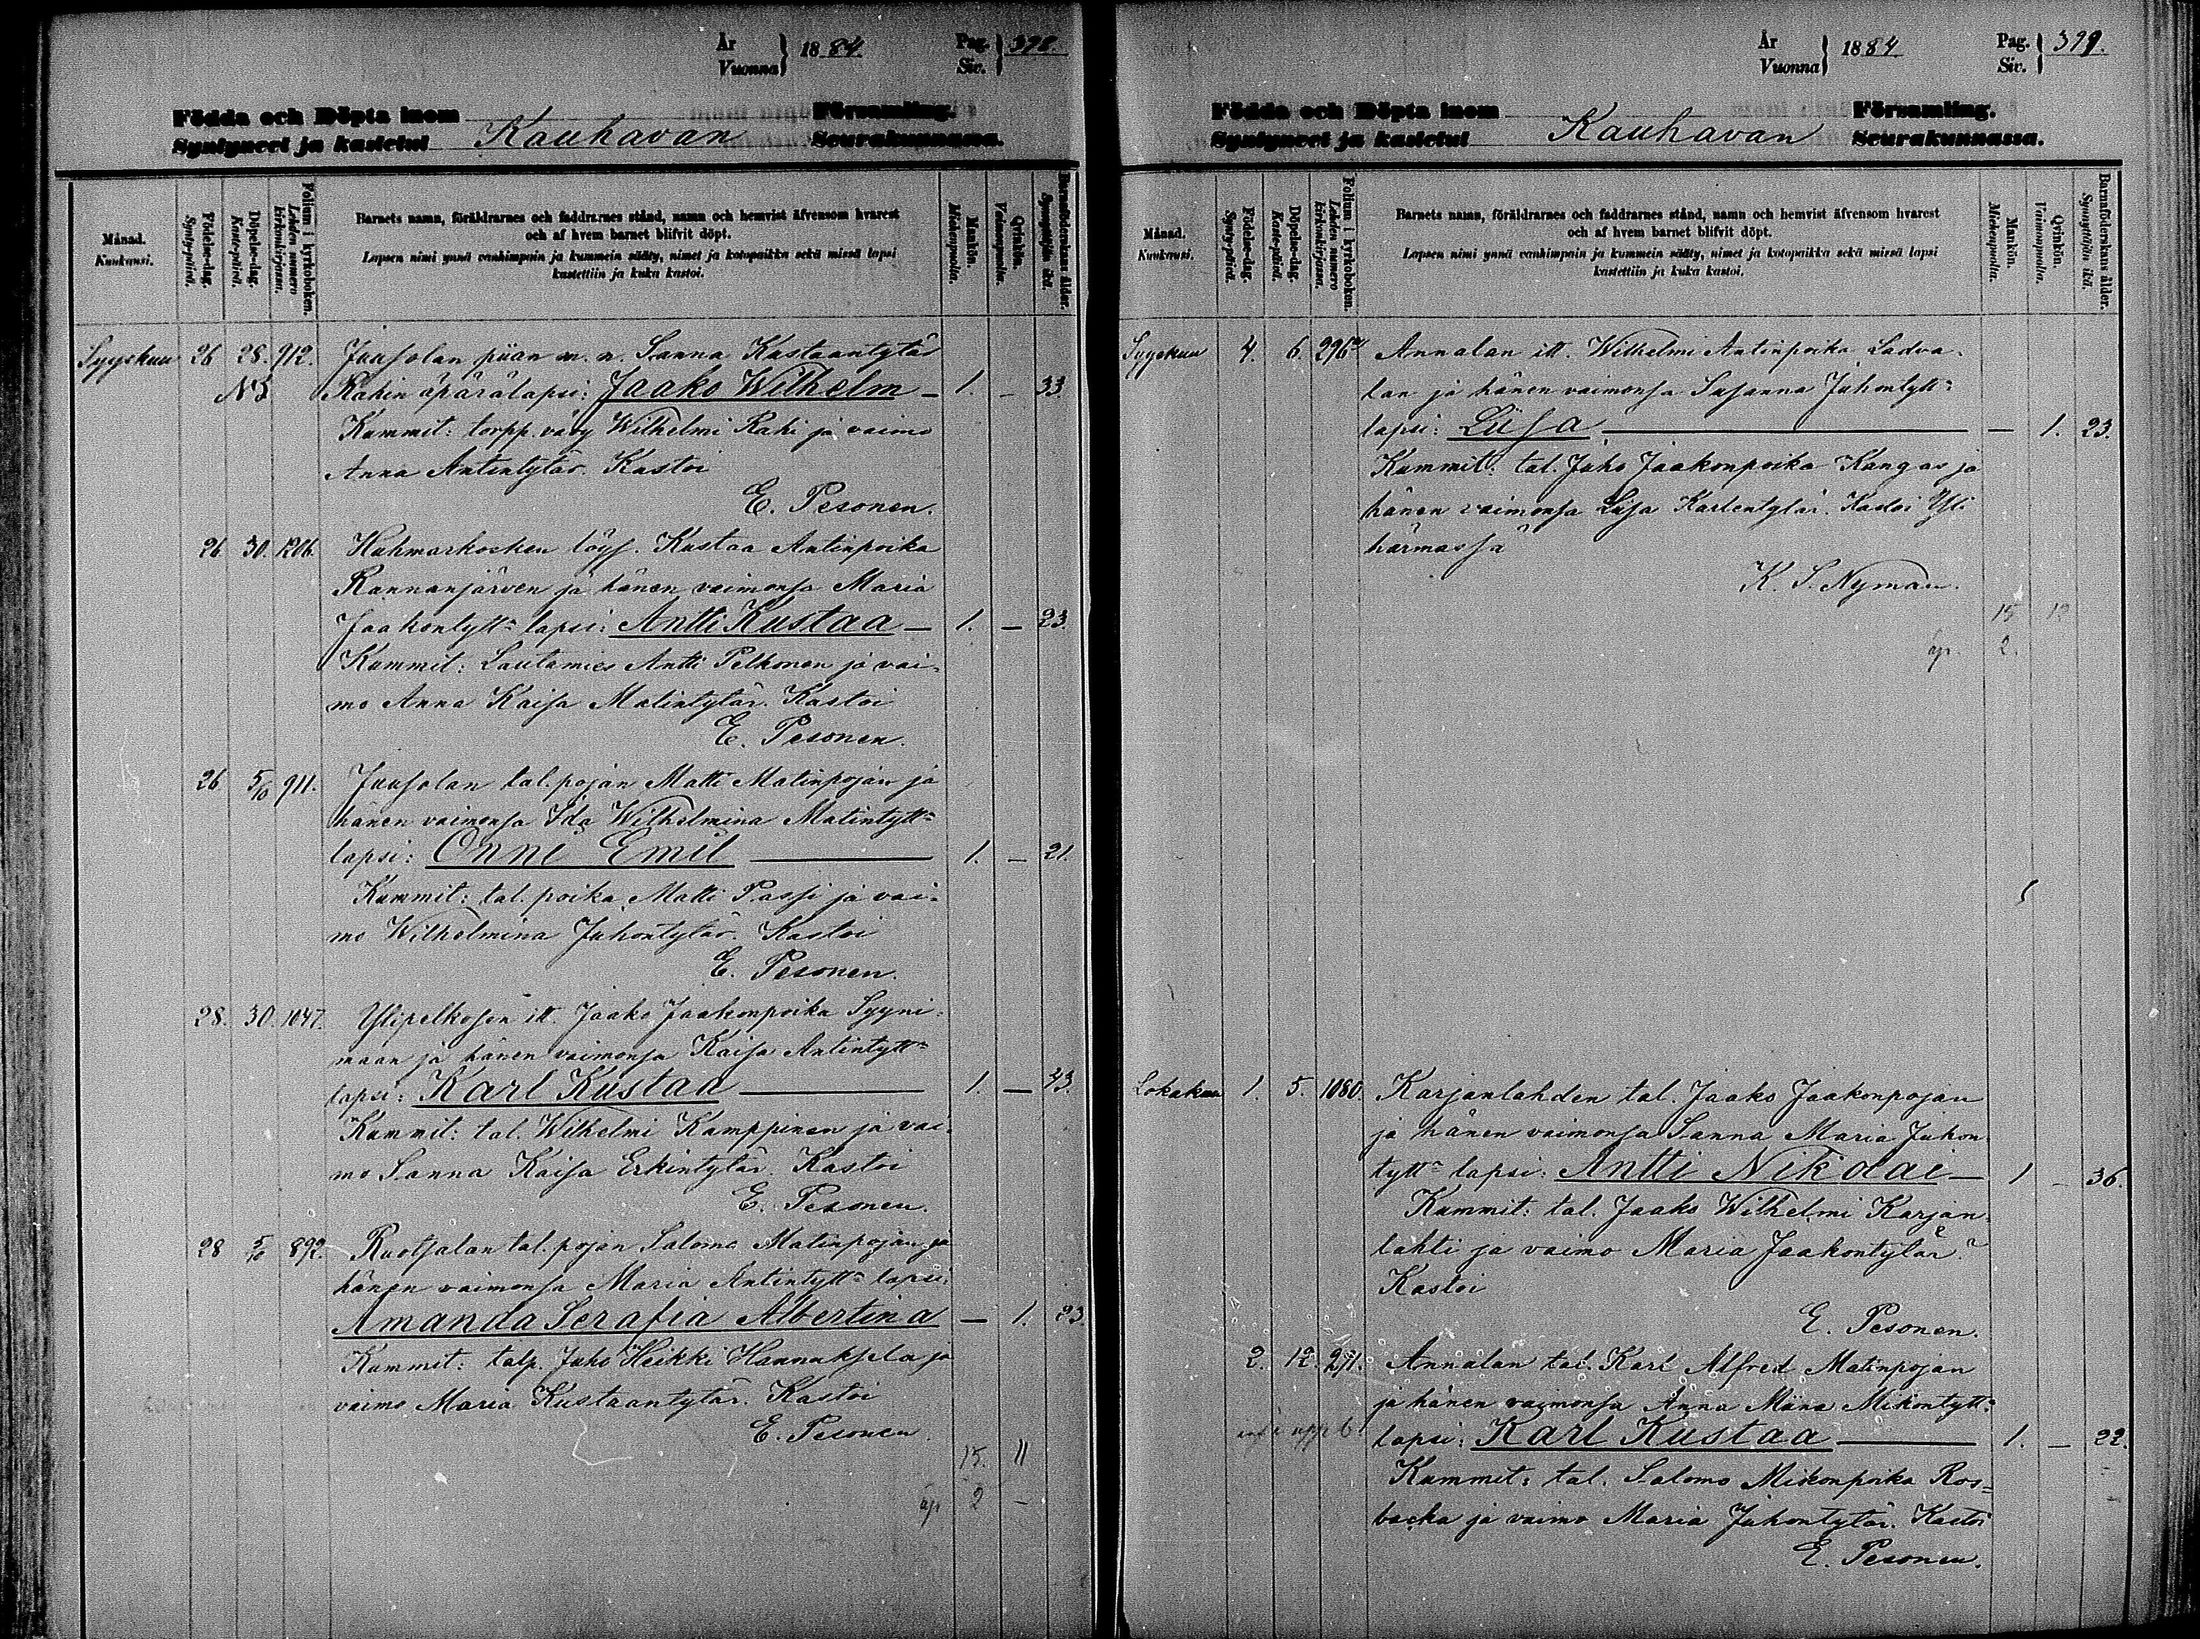 År
Vuonna
1884
Pag.
Siv.
398.
Födda och Döpta inom
Syntyneet ja kastetut
Kauhavan
Församling.
Seurakunnassa.
Månad.
Kuukausi.
Födelse-dag.
Syntypäivä.
Döpelse-dag.
Kastepäivä.
Folium i kyrkoboken.
Lehden numero kirkonkirjassa.
Barnets namn, föräldrarnes och faddrarnes stånd, namn och hemvist äfvensom hvarest
och af hvem barnet blifvit döpt.
Lapsen nimi ynnä vanhimpain ja kummein sääty, nimet ja kotopaikka sekä missä lapsi
kastettiin ja kuka kastoi.
Mankön.
Miehenpuolta.
Qvinkön.
Vaimonpuolta.
Barnaföderskans ålder.
Synnyttäjän ikä.
Syyskuu 26 28. 912. Jausolan piian m. n. Sanna Kustaantytär
Rahin äpärälapsi: Jaako Wilhelm — 1. — 33.
Kummit: torpp. vävy Wilhelmi Rahi ja vaimo
Anna Antintytär. Kastoi
E. Pesonen.
26. 30. 1206. Huhmarkosken löys. Kustaa Antinpoika
Rannanjärven ja hänen vaimonsa Maria
Jaakontytt= lapsi: Antti Kustaa — 1. — 23.
Kummit: Lautamies Antti Pelkonen ja vai-
mo Anna Kaisa Matintytär. Kastoi
E. Pesonen.
26 5/10 911. Jausolan tal. pojan Matti Matinpojan ja
hänen vaimonsa Ida Wilhelmina Matintytt=
lapsi: Onni Emil — 1. — 21.
Kummit: tal. poika Matti Passi ja vai-
mo Wilhelmina Juhontytär. Kastoi
E. Pesonen.
28. 30. 1047. Ylipelkosen itt. Jaako Jaakonpoika Syyni-
maan ja hänen vaimonsa Kaisa Antintytt=
lapsi: Karl Kustaa — 1. — 43.
Kummit: tal. Wilhelmi Kamppinen ja vai-
mo Sanna Kaisa Erkintytär. Kastoi
E. Pesonen.
28 5/10 892. Ruotsalan tal. pojan Salomo Matinpojan ja
hänen vaimonsa Maria Antintytt= lapsi:
Amanda Serafia Albertina — 1. 23.
Kummit: talp. Juho Heikki Hannuksela ja
vaimo Maria Kustaantytär. Kastoi
E. Pesonen.
15. 11
äp. 2 —
År
Vuonna
1884
Pag.
Siv.
399.
Födda och Döpta inom
Syntyneet ja kastetut
Kauhavan
Församling.
Seurakunnassa.
Månad.
Kuukausi.
Födelse-dag.
Syntypäivä.
Döpelse-dag.
Kastepäivä.
Folium i kyrkoboken.
Lehden numero kirkonkirjassa.
Barnets namn, föräldrarnes och faddrarnes stånd, namn och hemvist äfvensom hvarest
och af hvem barnet blifvit döpt.
Lapsen nimi ynnä vanhimpain ja kummein sääty, nimet ja kotopaikka sekä missä lapsi
kastettiin ja kuka kastoi.
Mankön.
Miehenpuolta.
Qvinkön.
Vaimonpuolta.
Barnaföderskans ålder.
Synnyttäjän ikä.
Syyskuu 4. 6. 296 Annalan itt. Wilhelmi Antinpoika Ladva-
lan ja hänen vaimonsa Susanna Juhontytt=
lapsi: Liisa — 1. 23.
Kummit: tal. Juho Jaakonpoika Kangas ja
hänen vaimonsa Liisa Karlentytär. Kastoi Yli-
härmässä
K. S. Nyman.
15 12
äp. 2.
Lokakuu 1. 5. 1080. Karjanlahden tal. Jaako Jaakonpojan
ja hänen vaimonsa Sanna Maria Juhon-
tytt= lapsi: Antti Nikolai — 1 — 36.
Kummit: tal. Jaako Wilhelmi Karjan-
lahti ja vaimo Maria Jaakontytär.
Kastoi
E. Pesonen.
2. 12. 271. Annalan tal. Karl Alfred Matinpojan
ja hänen vaimonsa Anna Miina Mikontytt=
lapsi: Karl Kustaa — 1. — 22.
Kummit: tal. Salomo Mikonpoika Ros-
backa ja vaimo Maria Juhontytär. Kastoi
E. Pesonen.